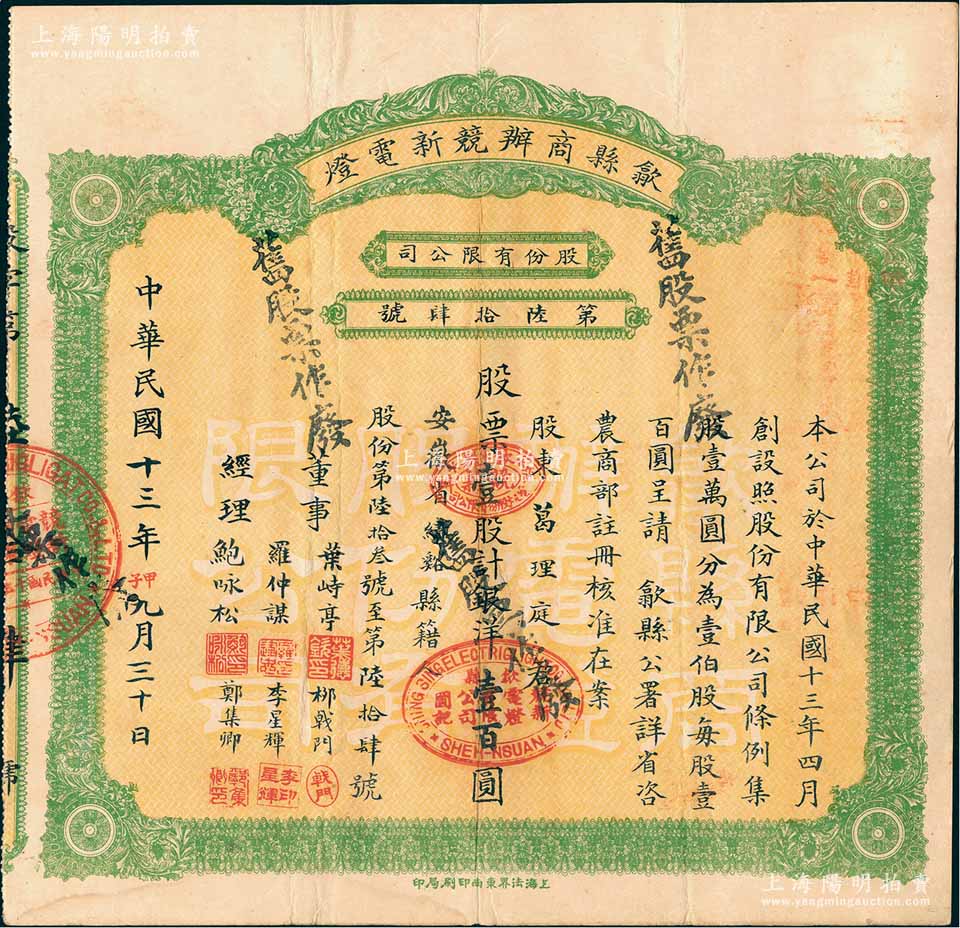 上海陽明拍賣
www.yangmingauction.com
歙縣商辦競新電燈
股份有限公司
第陸拾肆號
舊股票作廢
本公司於中華民國十三年四月
創設照股份有限公司條例集
股壹萬圓分為壹伯股每股壹
百圓呈請 歙縣公署詳省咨
農商部註冊核准在案
股東葛理庭
股票壹股計銀洋壹百圓
安徽省績谿縣籍
股份第陸拾叁號至第陸拾肆號
舊股票作廢
董事
葉峙亭
柳戟門
戟門
羅仲謀
李星輝
李印星輝
經理
鮑咏松
鄭集卿
中華民國十三年
甲子
九月三十日
SING ELECTRIC
SHEH-HSUAN
上海陽明拍賣
www.yangmingauction.com
上海法界東南印刷局印
上海陽明拍賣
www.yangmingauction.com